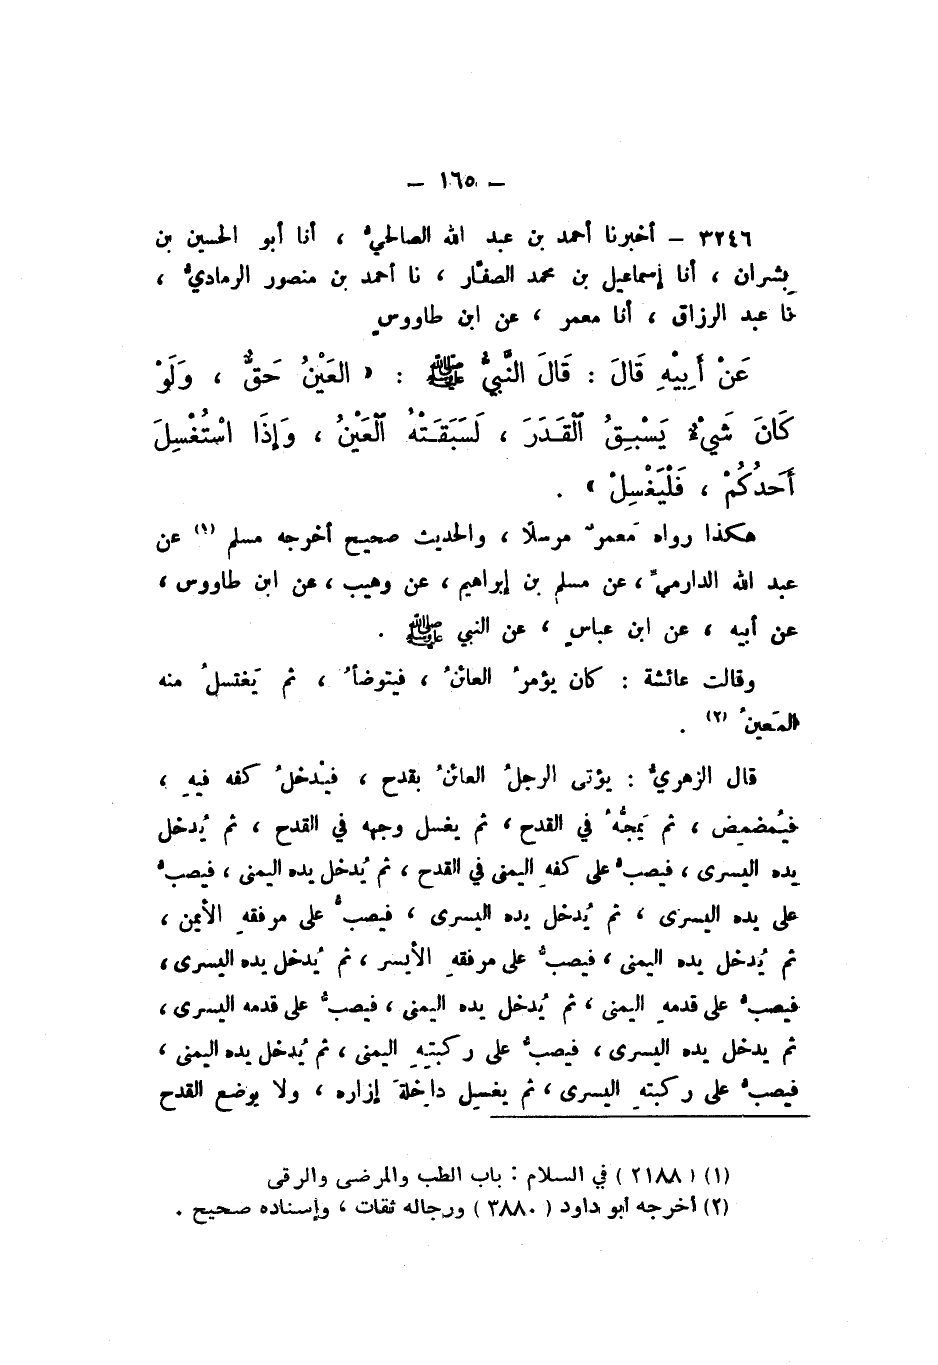 – ١٦٥ –
٣٢٤٦ – أخبرنا أحمد بن عبد الله الصالحيُّ ، أنا أبو الحسين بن
بِشران ، أنا إسماعيل بن محمد الصفَّار ، نا أحمد بن منصور الرماديُّ ،
نا عبد الرزاق ، أنا معمر ، عن ابن طاووسٍ
عَنْ أَبِيْهِ قَالَ : قَالَ النَّبِيُّ ﷺ : « العَيْنُ حَقٌّ ، وَلَوْ
كَانَ شَيْءٌ يَسْبِقُ ٱلْقَدَرَ ، لَسَبَقَتْهُ ٱلْعَيْنُ ، وَإِذَا اسْتُغْسِلَ
أَحَدُكُمْ ، فَلْيَغْسِلْ » .
هكذا رواه مَعمرٌ مرسلًا ، والحديث صحيح أخرجه مسلم (١) عن
عبد الله الدارميِّ ، عن مسلم بن إبراهيم ، عن وهيب ، عن ابن طاووس ،
عن أبيه ، عن ابن عباسٍ ، عن النبي ﷺ .
وقالت عائشة : كان يؤمرُ العائنُ ، فيتوضأُ ، ثم يَغتسلُ منه
المَعينُ (٢) .
قال الزهريُّ : يؤتى الرجلُ العائنُ بقدح ، فيُدخلُ كفه فيهِ ،
فيُمضمِض ، ثم يَمجُّهُ في القدح ، ثم يغسل وجهه في القدح ، ثم يُدخل
يده اليسرى ، فيصبُّ على كفهِ اليمنى في القدح ، ثم يُدخل يده اليمنى ، فيصبُّ
على يده اليسرى ، ثم يُدخل يده اليسرى ، فيصبُّ على مرفقهِ الأيمن ،
ثم يُدخل يده اليمنى ، فيصبُّ على مرفقهِ الأيسر ، ثم يُدخل يده اليسرى ،
فيصبُّ على قدمهِ اليمنى ، ثم يُدخل يده اليمنى ، فيصبُّ على قدمه اليسرى ،
ثم يدخل يده اليسرى ، فيصبُّ على ركبتِهِ اليمنى ، ثم يُدخل يده اليمنى ،
فيصبُّ على ركبتهِ اليسرى ، ثم يغسِل داخِلةَ إزاره ، ولا يوضع القدح
(١) ( ٢١٨٨ ) في السلام : باب الطب والمرضى والرقى
(٢) أخرجه أبو داود ( ٣٨٨٠ ) ورجاله ثقات ، وإسناده صحيح .